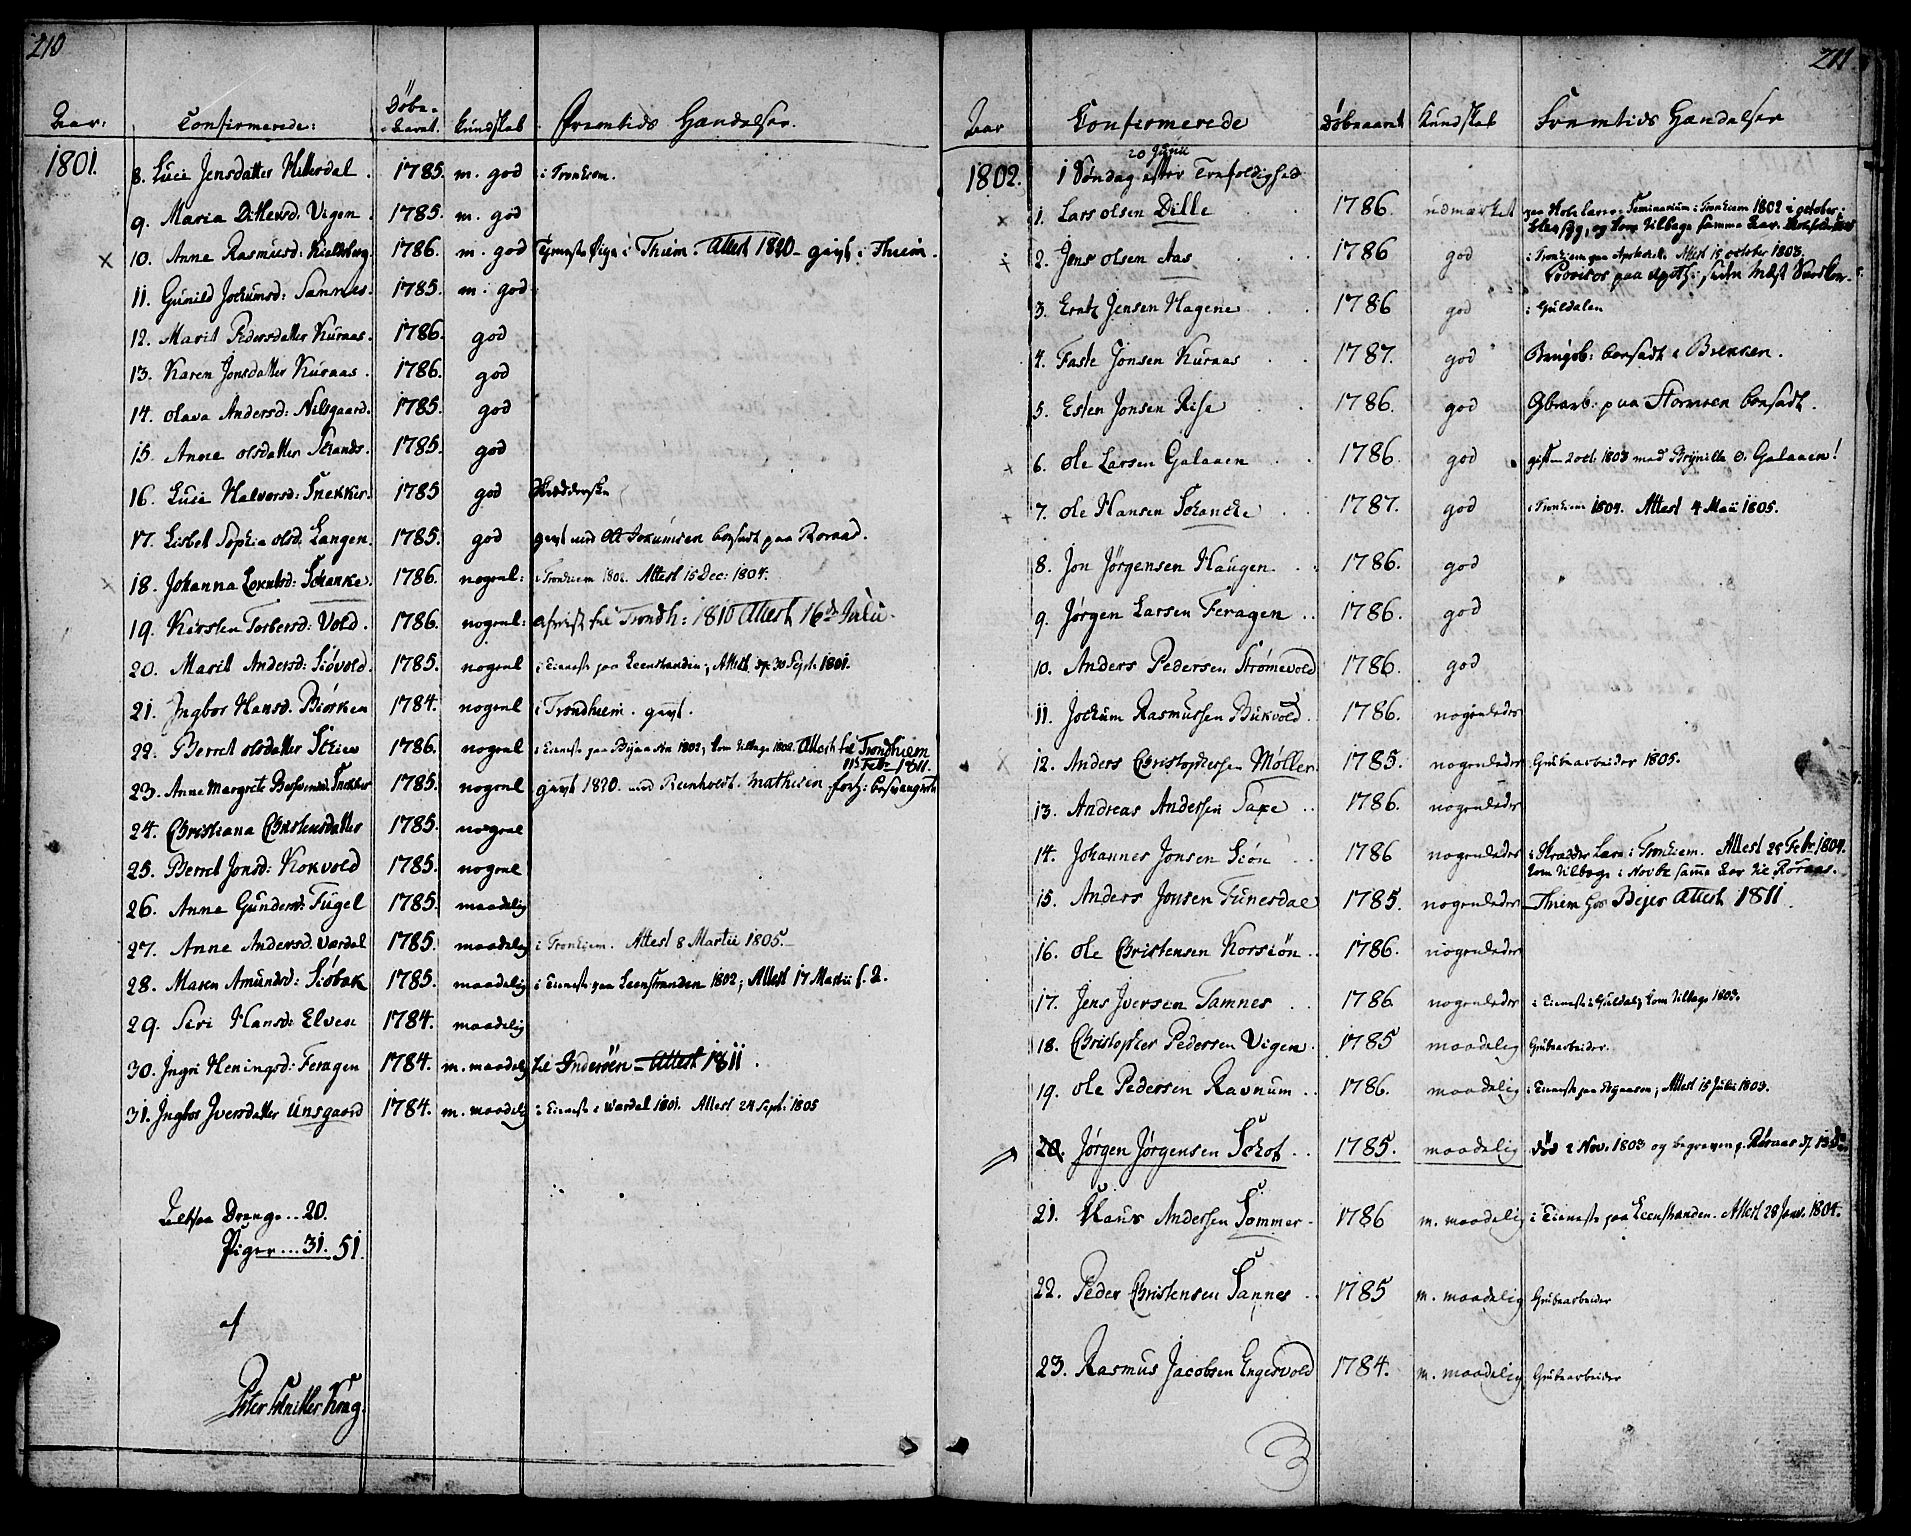 210
Aar: Confirmerede: Döbe-Aaret. Kundskab Fremtids Hændelser.
1801. 8. Luci Jensdatter Hitterdal. 1785. m. god i Tronhiem.
9. Maria Ditlevsd. Vigen. 1785. m. god
10. Anne Rasmusd: 1786. m. god Tieneste Pige i Thiem. Attest 1820 - givt i Thiem.
11. Gunild Jochumsd: Tamnes. 1785. m. god
12. Marit Pedersdatter Kuraas. 1786. god
13. Karen Jonsdatter Kuraas. 1786. god
14. Olava Andersd: Nilsgaard. 1785. god
15. Anne Olsdatter Strands. 1785. god
16. Luci Halvorsd: Snekker. 1785 god
17. Lisbet Sophia Olsd. Langen. 1785. god givt med Ole bosadt paa Roraas.
18. Johanna Schanke. 1786. nogenl: i Tronhiem 1802. Attest 15 Dec: 1804.
19. Kirsten Torbersd: Vold. 1786. nogenl: afreist til Trondh: 1810 Attest 16de Julii.
20. Marit Andersd: Siövold. 1785. nogenl i Tieneste paa Leenstranden; Attest 30 Sept. 1801.
21. Ingbor Hansd. Biörken 1784. nogenl i Trondhiem. givt.
22. Berret Olsdatter 1786. nogenl i Tieneste paa 1802; kom tilbage 1802. Attest til Trondhiem 11 Febr 1811.
23. Anne Margrete Snekker 1785. nogenl givt 1820. med Reinholdt Mathisen
24. Christiana Christensdatter 1785. nogenl
25. Berret Jonsd: Kokvold 1785. nogenl
26. Anne Gundersd. Fugel 1785. maadelig
27. Anne Andersd. Værdal 1785. maadelig i Tronhiem. Attest 8 Martii 1805.
28. Maren Amundsd: Siöbak 1785. maadelig i Tieneste paa Leenstranden 1802; Attest 17 Martii
29. Siri Hansd: Elven 1784. maadelig
30. Ingri Heningsd: Feragen 1784. m. maadelig til Inderöen - Attest 1811.
31. Ingbor Iversdatter Unsgaard 1784. m. maadelig i Tieneste i Wærdal 1801. Attest 24 Sept. 1805
Altsaa Drenge... 20.
Piger... 31. 51.
af
Peter Schnitler Krag.
211
Aar Confirmerede Döbeaaret Kundskab Fremtids Hændelser
1802. 20 Junii
1 Söndag efter Trefoldighed
1. Lars Olsen Dille 1786. udmærket paa Seminarium i Tronhiem 1802 i october; og kom tilbage samme Aar.
2. Jens Olsen Aas 1786 god i Tronhiem paa Apotheket. Attest 15 october 1803.
Provisor paa
3. Jensen Hagene 1786 god i Guldalen
4. Faste Jonsen Kuraas 1787. god bosadt i Brekken.
5. Esten Jonsen Rise 1786. god paa Stormoen bosadt.
6. Ole Larsen Galaaen 1786. god gift 2 oct. 1803 med Brynilla O. Galaaen!
7. Ole Hansen Schancke 1787. god i Tronhiem 1804. Attest 4 Maii 1805.
8. Jon Jörgensen Haugen. 1786. god
9. Jörgen Larsen Feragen 1786. god
10. Anders Pedersen Strömevold 1786. god
11. Jochum Rasmussen Bukvold. 1786. nogenledes
12. Anders Christophersen Möller 1785. nogenledes Grubearbeider 1805.
13. Andreas Andersen Saxe 1786. nogenledes
14. Johannes Jonsen Siön 1786 nogenledes i Skrædder Lære i Tronhiem. Attest 25 Febr. 1804.
kom tilbage i Novbr samme Aar til Röraas.
15. Anders Jonsen Funesdal 1785. nogenledes Thiem hos Beyer Attest 1811
16. Ole Christensen Korssiön 1786. nogenledes
17. Jens Iversen Tamnes 1786. nogenledes i Tieneste i Guldal; kom tilbage 1803.
18. Christopher Pedersen Vigen 1785 maadelig Grubearbeider.
19. Ole Pedersen Ravnum 1786. maadelig i Tieneste paa Attest 15 Julii 1803.
20. Jörgen Jörgensen Schot 1785. maadelig död 2 Nov. 1803 og begraven p. Röraas d. 13 d:
21. Klaus Andersen Sommer 1786 m. maadelig i Tieneste paa Leenstranden. Attest 28 Jan. 1804.
22. Peder Christensen Sannes 1785 m. maadelig Grubearbeider
23. Rasmus Jacobsen Engesvold 1784. m. maadelig Grubearbeider